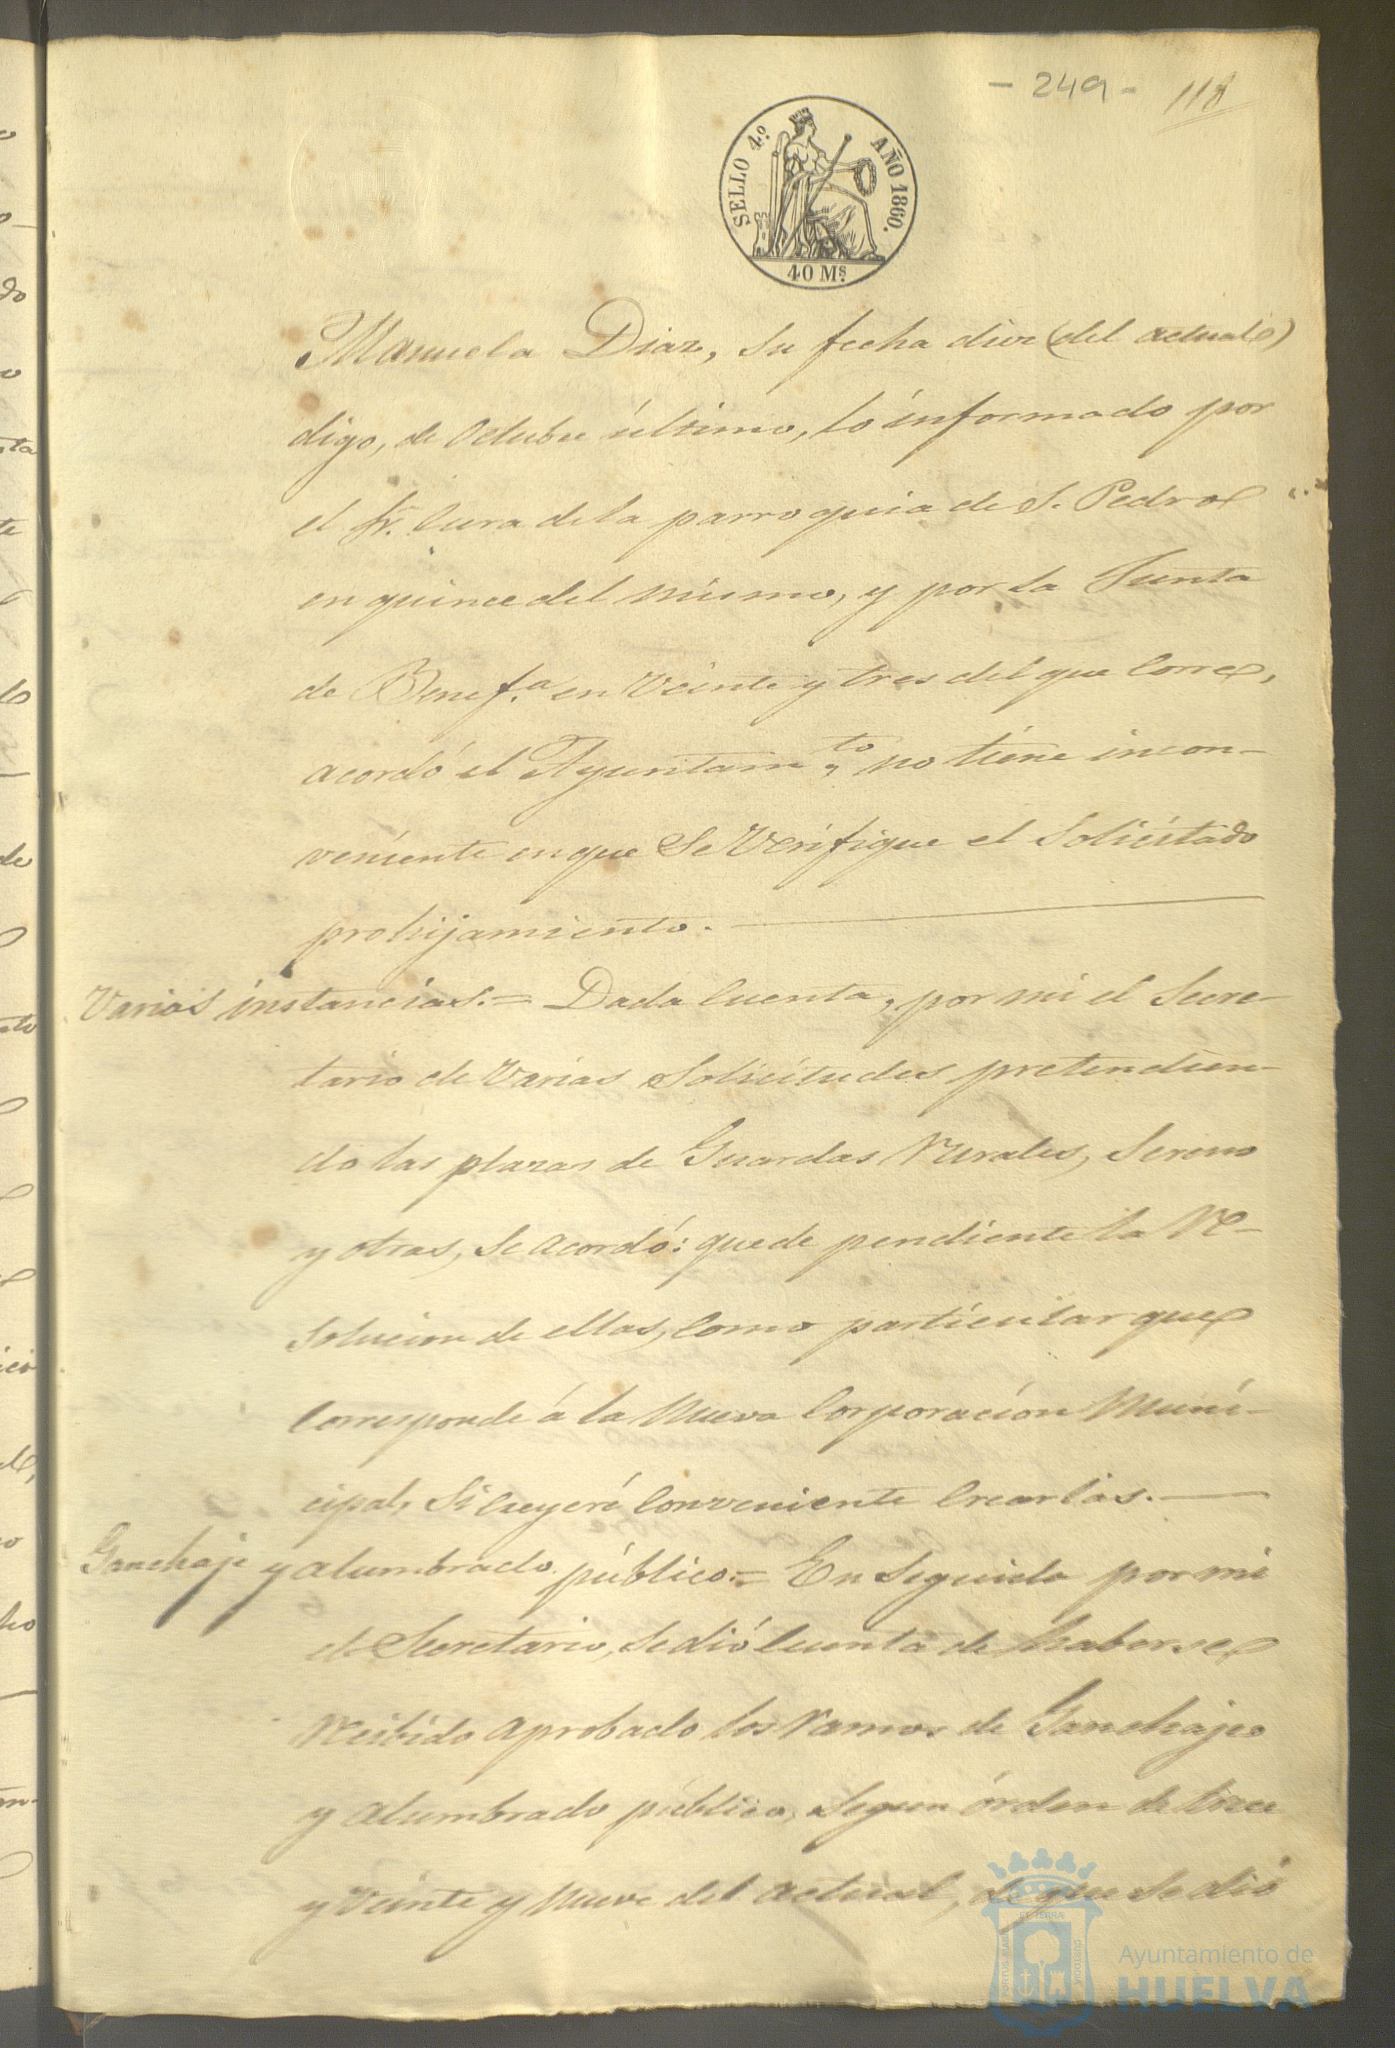 - 249 - 118
SELLO 4.º AÑO 1860.
40 Ms.
Manuela Diaz, su fecha diez (del actual)
digo, de Octubre último, lo informado por
el Sr. Cura de la parroquia de S. Pedro
en quince del mismo, y por la Junta
de Benef.a en veinte y tres del que corre,
acordó el Ayuntam.to no tiene incon-
veniente en que se verifique el solicitado
prohijamiento.
Varias instancias.= Dada cuenta, por mi el Secre-
tario de varias solicitudes pretendien-
do las plazas de Guardas Rurales, Sereno
y otras, se acordó: quede pendiente la re-
solucion de ellas, como particular que
corresponde á la nueva Corporacion Muni-
cipal, si creyere conveniente crearlas.
Ganchaje y alumbrado público.= En seguida por mi
el Secretario, se dió cuenta de haberse
recibido aprobado los ramos de Ganchaje
y alumbrado público, segun órden de trece
y veinte y nueve del actual, de que se dió
Ayuntamiento de
HUELVA